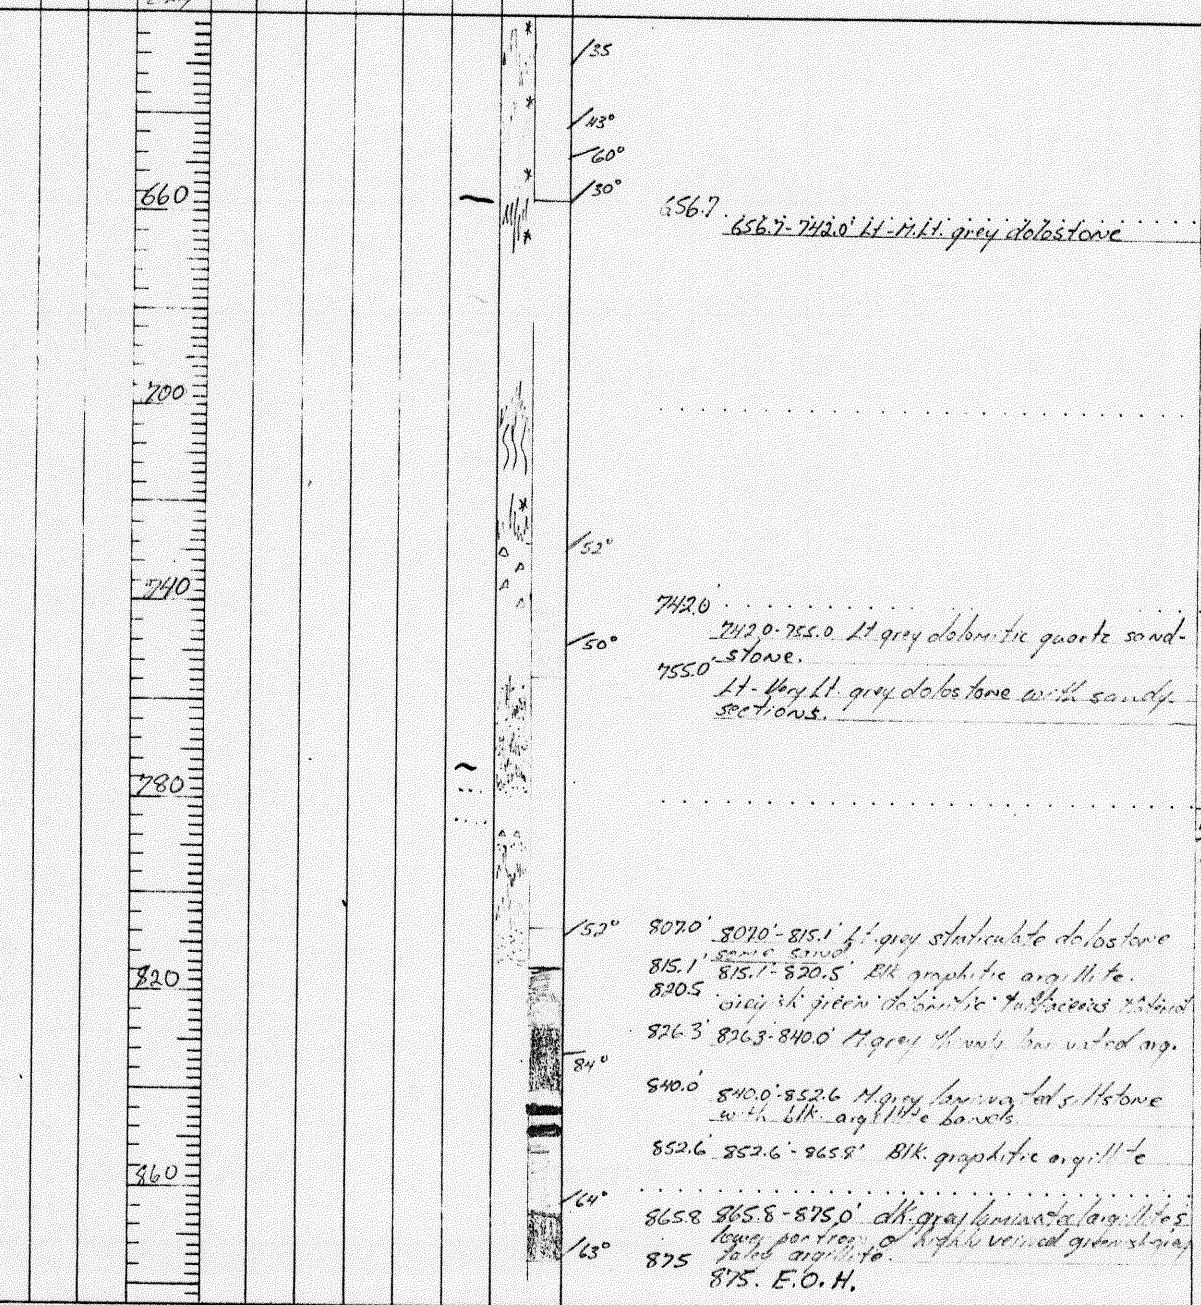 /35
43°
60°
660
30°
656.7
656.7-742.0' Lt-M.Lt. grey dolostone
700
52°
740
742.0'
742.0-755.0 Lt grey dolomitic quartz sand-
stone.
50°
755.0'
Lt-Very Lt. grey dolostone with sandy
sections.
780
52°
807.0' 807.0'-815.1' Lt. grey dolostone
some sand
815.1' 815.1'-820.5' Blk graphitic argillite.
820
820.5 greyish green dolomitic tuffaceous
826.3' 826.3'-840.0' M. grey thinly laminated arg.
84°
840.0' 840.0'-852.6 M. grey laminated siltstone
with blk. argillite bands
852.6' 852.6'-865.8' Blk. graphitic argillite
860
64°
865.8 865.8-875.0' dk. grey laminated argillite &
lower portion of highly veined greenish grey
63°
875 talcy argillite.
875. E.O.H.